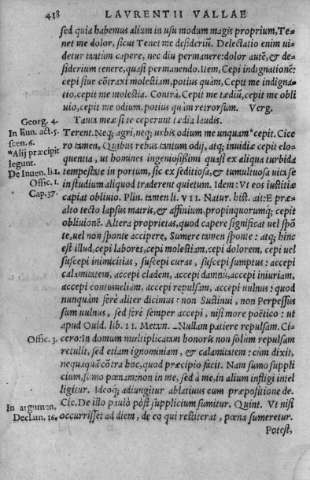 438 LAVRENTII VALLAE
sed quia habemus alium in usu modum magis proprium, Te
net me dolor, sicut Tenet me desideriũ. Delectatio enim ui-
detur tantũm capere, nec diu permanere: dolor autẽ, & de-
siderium tenere, quasi permanendo. Item, Cepi indignationẽ:
cepi siue cõtraxi molestiam, potius quàm, Cepit me indigna-
tio, cepit me molestia. Contrà, Cepit me tædiũ, cepit me obli
uio, cepit me odium, potius quàm retrorsum. Verg.
Georg. 4. Tanta meæ si te ceperunt tædia laudis.
In Eun. act. 5 Terent. Neq; agri, neq; urbis odium me unquam *cepit. Cice
scen. 6. ro tamen, Quibus rebus tantum odij, atq; inuidiæ cepit elo-
*Alij præcipit quentia, ut homines ingeniosissimi quasi ex aliqua turbida
legunt. tempestate in portum, sic ex seditiosa, & tumultuosa uita se
De Inuen. li. 1. in studium aliquod traderent quietum. Idem: Vt eos iustitiæ
Offic. 1. capiat obliuio. Plin. tamen li. VII. Natur. hist. ait: E præ-
Cap. 37. alto tecto lapsus matris, & affinium, propinquorumq; cepit
obliuionẽ. Altera proprietas, quod capere significat uel spõ
te, uel non sponte accipere, Sumere tamen sponte: atq; hinc
est illud, cepi labores, cepi molestiam, cepi dolorem, cepi uel
suscepi inimicitias, suscepi curas, suscepi sumptus: accepi
calamitatem, accepi cladem, accepi damnũ, accepi iniuriam,
accepi contumeliam, accepi repulsam, accepi uulnus: quod
nunquàm ferè aliter dicimus: non Sustinui, non Perpessus
sum uulnus, sed ferè semper accepi, nisi more poëtico: ut
apud Ouid. lib. 11. Metam. Nullam patiere repulsam. Ci-
Offic. 3. cero: In domum multiplicatam honoris non solum repulsam
retulit, sed etiam ignominiam, & calamitatem: cum dixit,
nequaquã cõtra hoc, quod præcipio fecit. Nam sumo suppli
cium, sumo pœnam: non in me, sed à me, in alium infligi intel
ligitur. Ideoq; addendus ablatiuus cum præpositione de.
Cic. De illo paulò pòst supplicium sumitur. Quint. Vt nisi
In argumen. occurrisset ad diem, de eo qui restiterat, pœna sumeretur.
Declam. 16.
Potest,